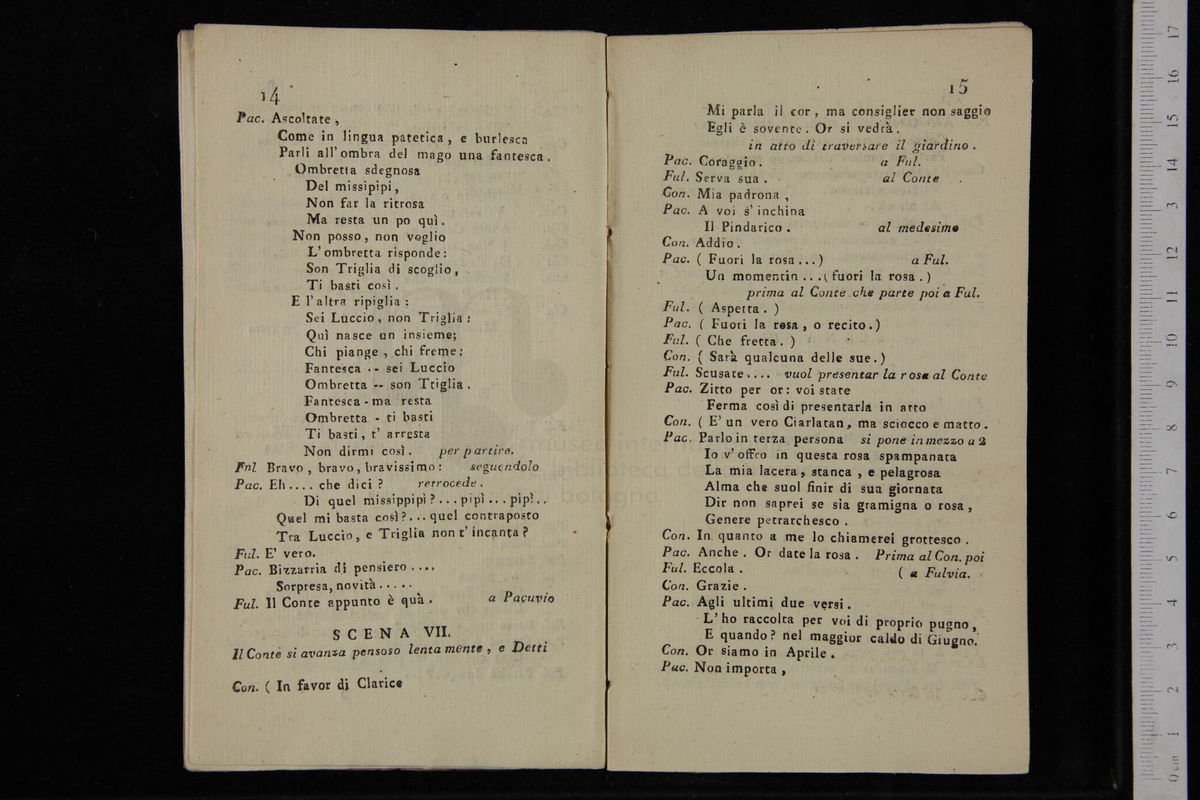 14
Pac. Ascoltate,
Come in lingua patetica, e burlesca
Parli all' ombra del mago una fantesca.
Ombretta sdegnosa
Del missipipi,
Non far la ritrosa
Ma resta un po quì.
Non posso, non voglio
L' ombretta risponde:
Son Triglia di scoglio,
Ti basti così.
E l' altra ripiglia:
Sei Luccio, non Triglia:
Quì nasce un insieme;
Chi piange, chi freme:
Fantesca -- sei Luccio
Ombretta -- son Ttiglia.
Fantesca - ma resta
Ombretta - ti basti
Ti basti, t' arresta
Non dirmi così. per partire.
Fnl Bravo, bravo, bravissimo: seguendolo
Pac. Eh.... che dici? retrocede.
Di quel missippipì?...pipì...pipì..
Quel mi basta così?...quel contraposto
Tra Luccio, e Triglia non t' incanta?
Ful. E' vero.
Pac. Bizzarria di pensiero....
Sorpresa, novità.....
Ful. Il Conte appunto è quà. a Pacuvio
SCENA VII.
Il Conte si avanza pensoso lentamente, e Detti
Con. ( In favor di Clarice
15
Mi parla il cor, ma consiglier non saggio
Egli è sovente. Or si vedrà.
in atto di traversare il giardino.
Pac. Coraggio. a Ful.
Ful. Serva sua. al Conte
Con. Mia padrona,
Pac. A voi s' inchina
Il Pindarico. al medesimo
Con. Addio.
Pac. ( Fuori la rosa...) a Ful.
Un momentin...( fuori la rosa.)
prima al Conte.che parte poi a Ful.
Ful. ( Aspetta. )
Pac. ( Fuori la rosa, o recito.)
Ful. ( Che fretta. )
Con. ( Sarà qualcuna delle sue.)
Ful. Scusate.... vuol presentar la rosa al Conte
Pac. Zitto per or: voi state
Ferma così di presentarla in atto
Con. ( E' un vero Ciarlatan, ma sciocco e matto.
Pac. Parlo in terza persona si pone in mezzo a 2
Io v' offro in questa rosa spampanata
La mia lacera, stanca, e pelagrosa
Alma che suol finir di sua giornata
Dir non saprei se sia gramigna o rosa,
Genere petrarchesco.
Con. In quanto a me lo chiamerei grottesco.
Pac. Anche. Or date la rosa. Prima al Con. poi
Ful. Eccola. ( a Fulvia.
Con. Grazie.
Pac. Agli ultimi due versi.
L' ho raccolta per voi di proprio pugno,
E quando? nel maggior caldo di Giugno.
Con. Or siamo in Aprile.
Pac. Non importa,